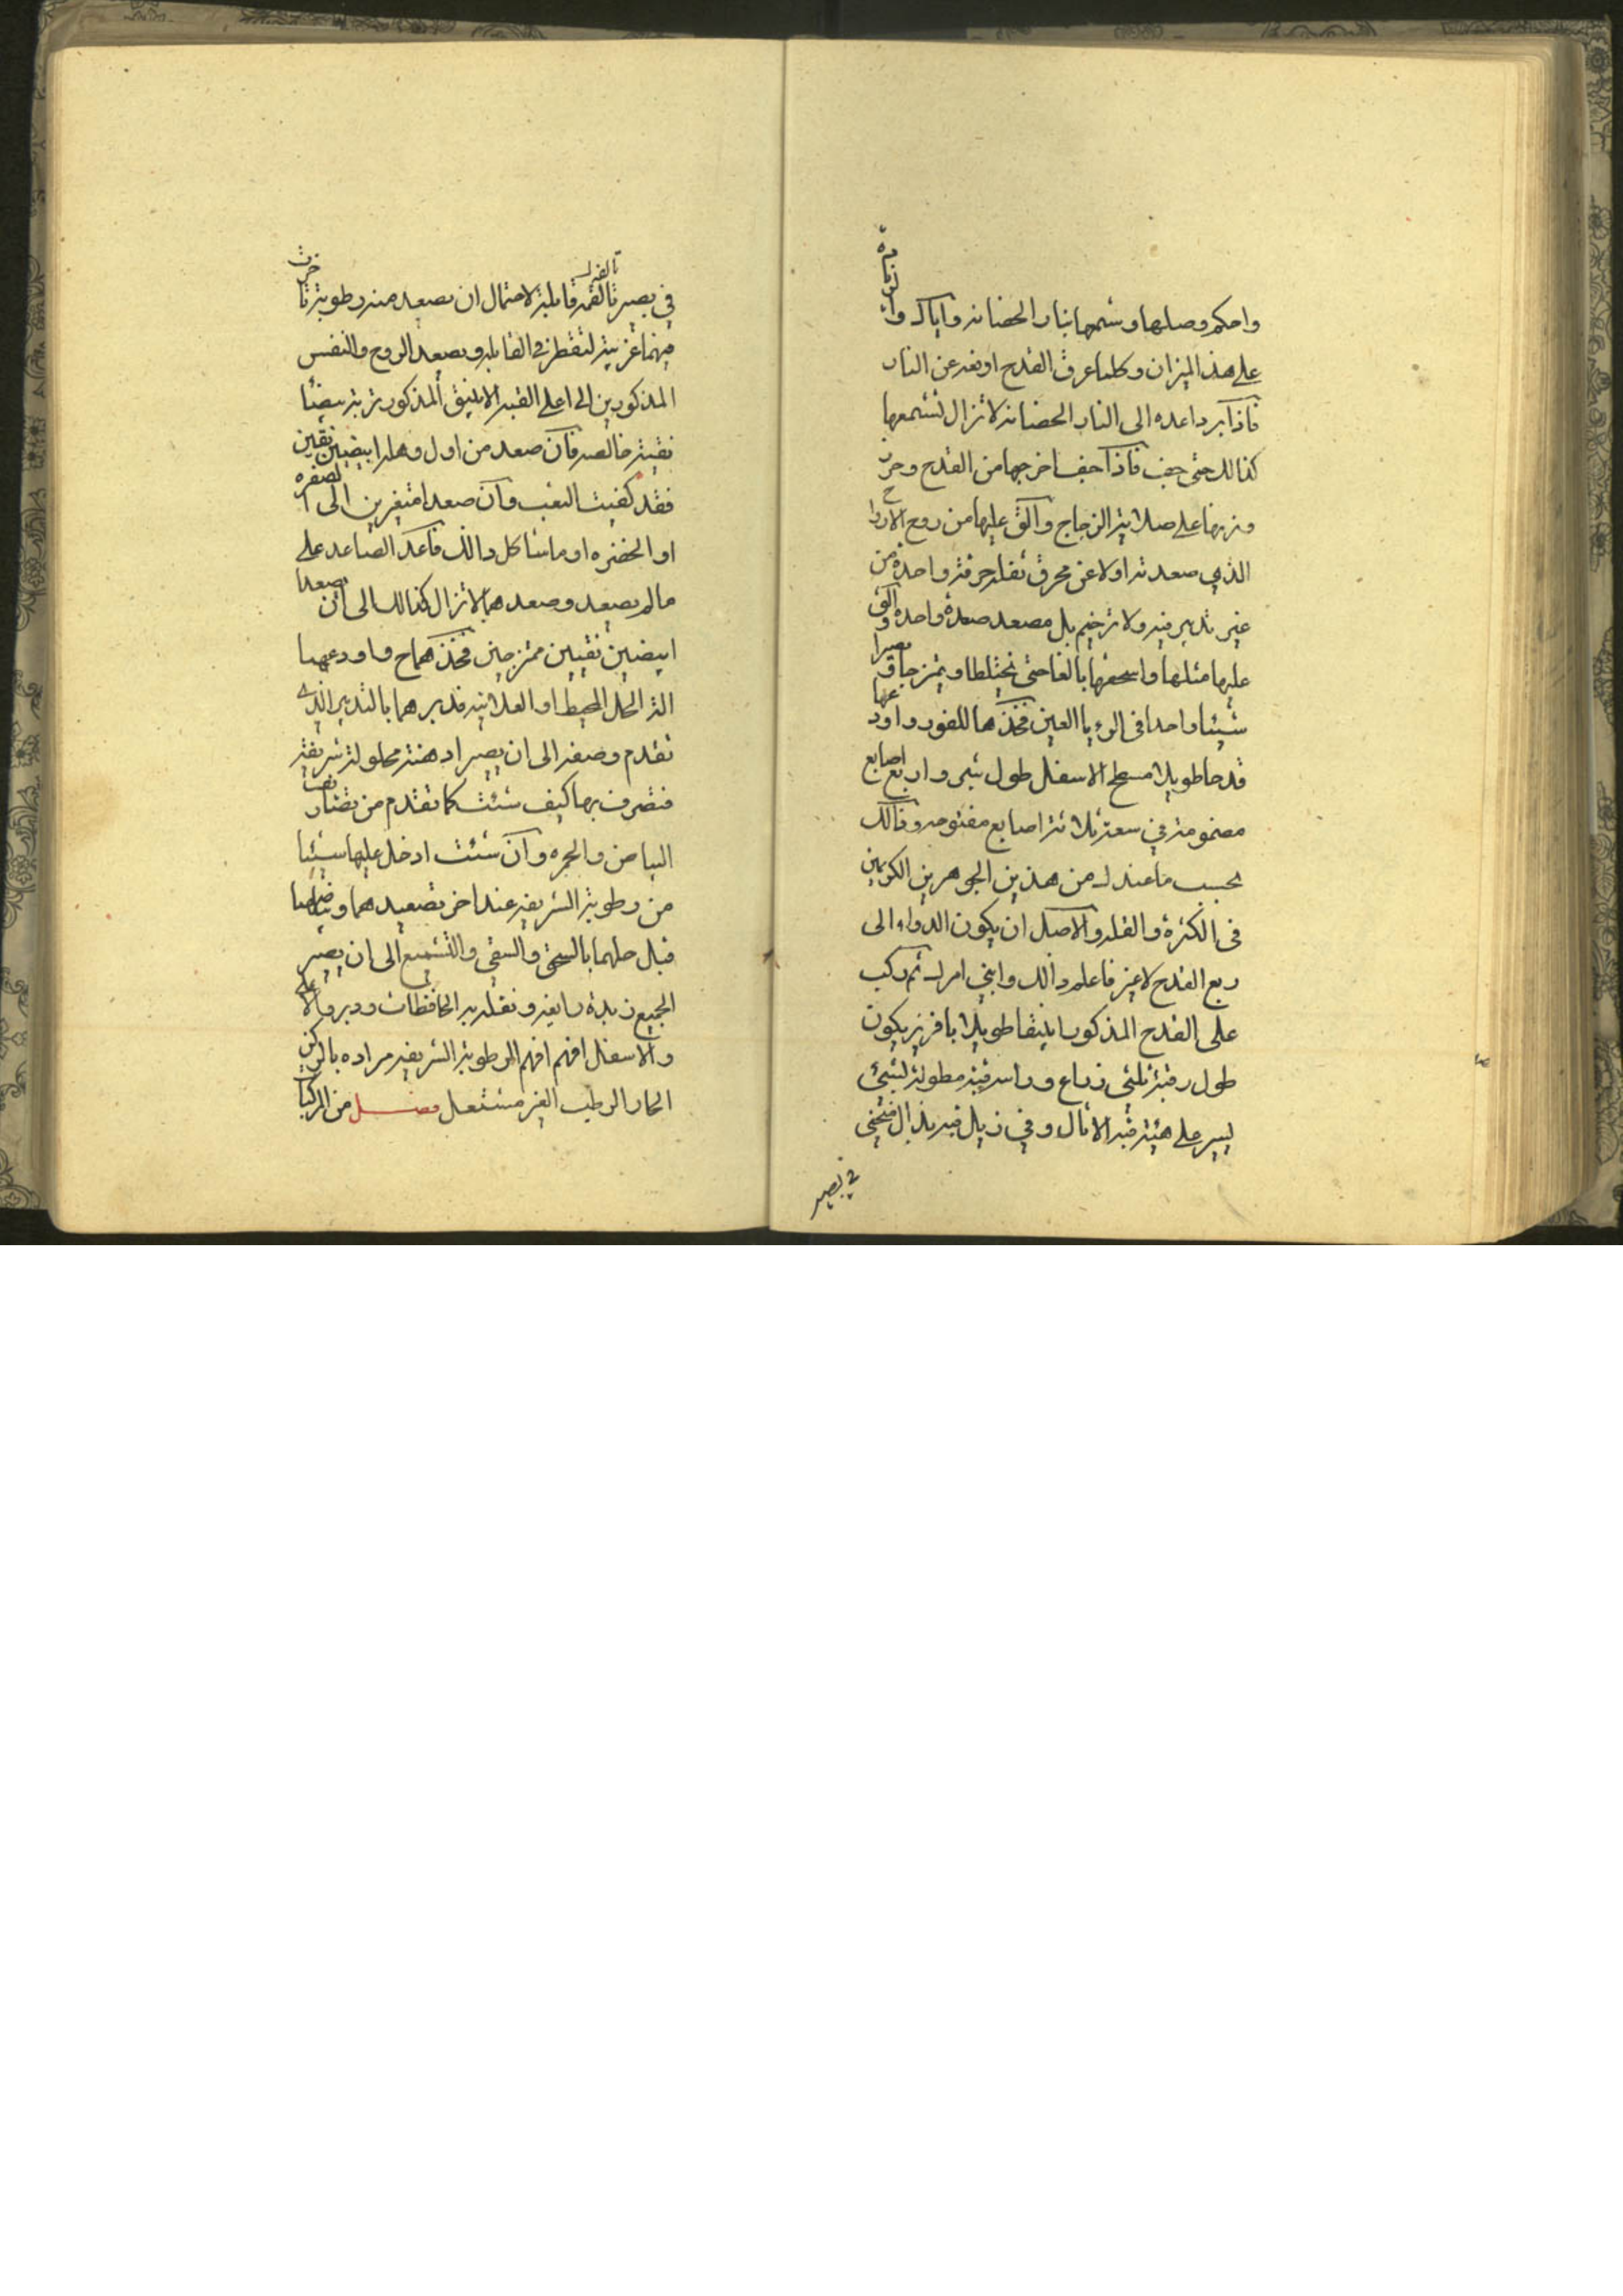 واحكم وصلها وشمعها بنار الحضانه واياك والزيادة
على هذ الميزان وكلما عرق القدح اوفعه عن النار
فاذا برد اعده الى النار الحضانه لا تزال تشمعها
كذالك حتى جف فاذا جف اخرجها من القدح وحرر
وزنها على صلاية الزجاج والق عليها من روح الارواح
الذي صعدته اولا عن محرق ثفله حرقة واحدة من
غير تدبير فيه ولا ترخيم بل مصعد صعدة واحده والق
عليها مثلها واسحقها بالغا حتى يختلطا ويمتزجا وتصيرا
شيئا واحدا في الرءيا العين فخذها للفور واودعها
قدحا طويلا مسطح الاسفل طول شبر واربع اصابع
مضمومة في سعة ثلاثة اصابع مفتوحه وذالك
بحسب ما عندك من هذين الجوهرين الكريمين
في الكثرة والقله والاصل ان يكون الدواء الى
ربع القدح لا غير فاعلم ذالك وابني امرك ثم ركب
على القدح المذكور ابنيقا طويلا بافريز يكون
طول رقبة ثلثي ذراع وراسه قبة مطولة لشيئ
يسير على هيئة قبه الاثال وفي ذيل قبه بذال فتخفي
في بصير
في بصير القابلة لاحتمال ان يصعد منه رطوبة تاخرت
فيهما غريبة لتقطر في القابله ويصعد الروح والنفس
المذكورين الى اعلى القبه الابنيق المذكور تربة بيضئا
نقية خالصه فان صعد من اول وهله ابيضين نقين
فقد كفيت التعب وان صعد امتغيرين الى الصفره
او الخضره او ما شاكل ذالك فاعد الصاعد على
ما لم يصعد وصعدهما لا تزال كذالك الى ان يصعدا
ابيضين نقيين ممتزجين فخذهما ح واودعهما
الة الحل المحيط او العلانيه فدبرهما بالتدبير الذي
تقدم وصفه الى ان يصير ادهنة محلولة شريفة
فتصرف بها كيف شئت كما تقدم من
البياض والحمره وان شئت ادخل عليها شيئا
من رطوبة الشريفه عند اخر تصعيدهما وبياضهما
قبل حلهما بالسحق والسقي والتشميع الى ان يصير
الجميع زبدة رايغه وتقله به الحافظات ودبر والاعلى
والاسفل افهم افهم الرطوبة الشريفه مراده بالركن
الحار الرطب الغير مشتعل فصل من المركبا